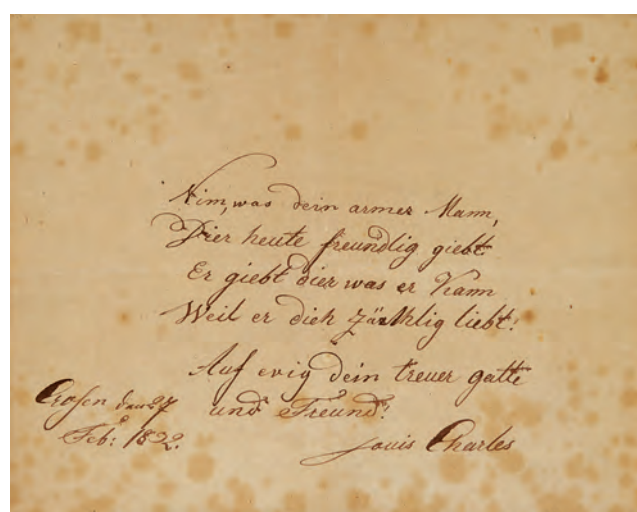 Nim, was dein armer Mann,
Dier heute freundlig giebt
Er giebt dier was er Kann
Weil er dich zärthlig liebt!
Auf ewig dein treuer gatte
und Freund!
Crosen den 27
Feb: 1822.
Louis Charles